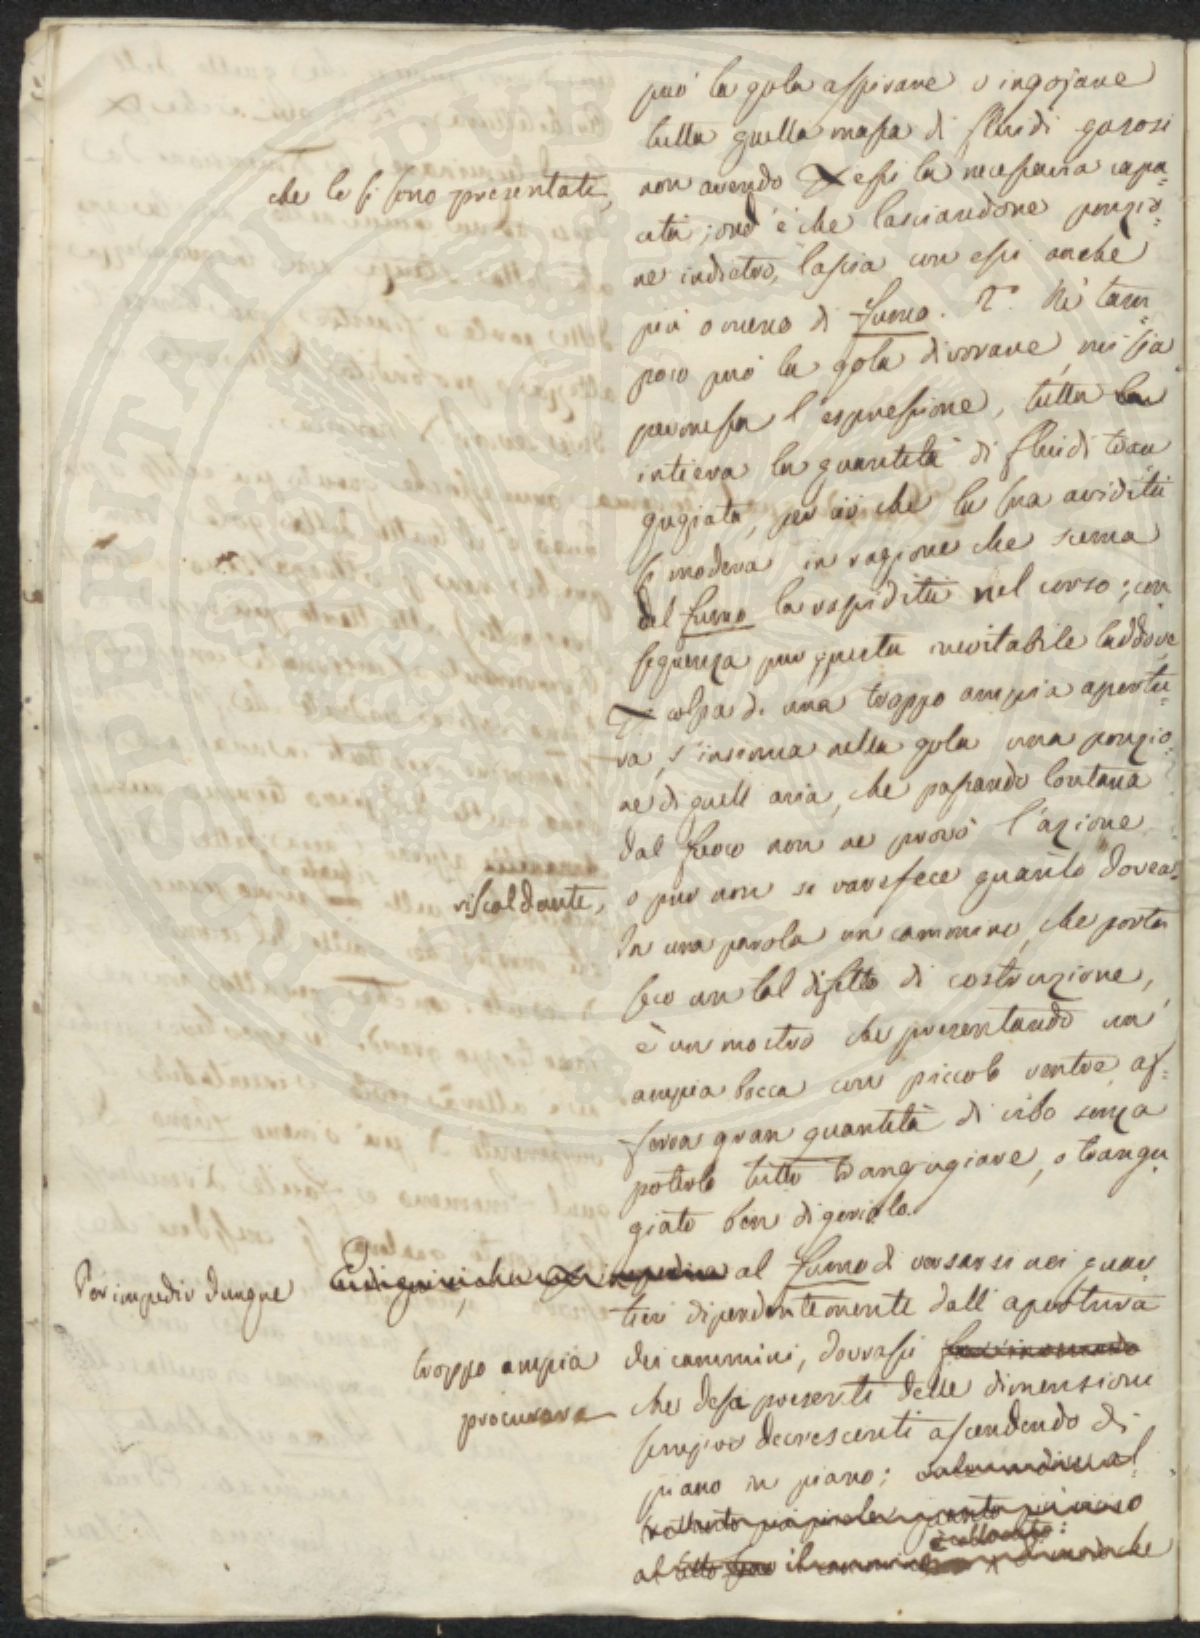 può la gola aspirare o ingojare
tutta quella massa di fluidi gasosi
che le si sono presentati,
non avendo essi la necessaria capa=
cità; ond'è che lasciandone porzio=
ne indietro, lascia con essi anche
più o meno di fumo. 2.° Nè tam=
poco può la gola divorare, mi sia
permessa l'espressione, tutta
intiera la quantità di fluidi tran
gugiata, per ciò che la sua avidità
si modera in ragione che scema
del fumo la rapidità nel corso; con
seguenza pur questa inevitabile laddove
colpa di una troppo ampia apertu=
ra, s'insinua nella gola una porzio=
ne di quell'aria, che passando lontana
dal fuoco non ne provò l'azione
riscaldante,
o pur non si rarefece quanto dovea.
In una parola un cammino, che porta
seco un tal difetto di costruzione,
è un mostro che presentando un'
ampia bocca con piccolo ventre af=
ferra gran quantità di cibo senza
poterlo tutto trangugiare, o trangu
giato ben digerirlo.
Per impedir dunque
al fumo di versarsi nei quar
tieri dipendentemente dall'apertura
troppo ampia
dei cammini, dovrassi
procurare
che dessa presenti delle dimensioni
sempre decrescenti ascendendo di
piano in piano;